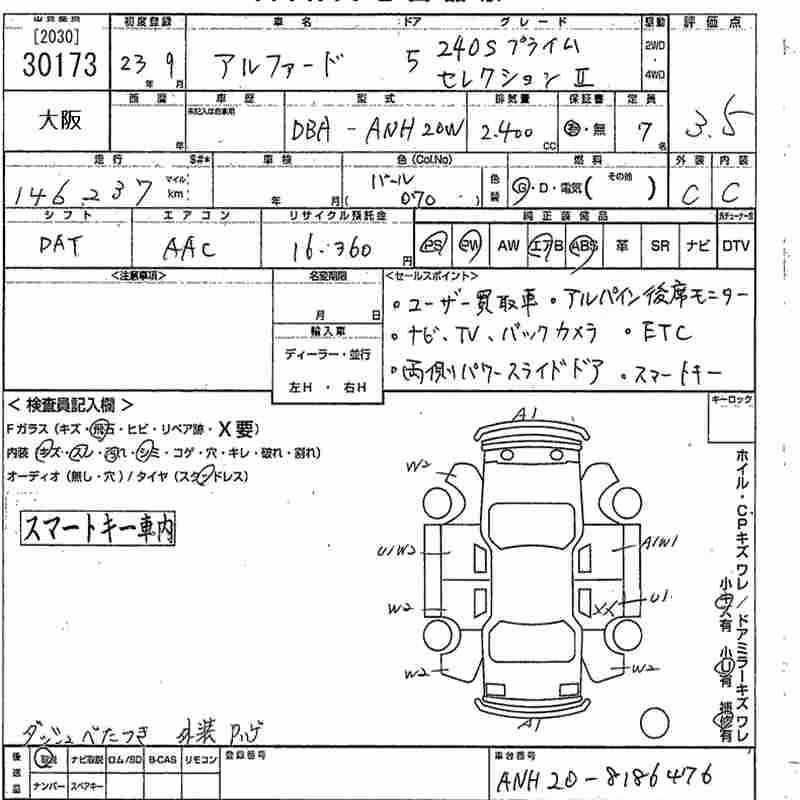 [2030]
30173
初度登録
23年 9月
車名
アルファード
ドア
5
グレード
240S プライム
セレクションⅡ
駆動
2WD
・
4WD
評価点
3.5
大阪
西暦
年
車歴
未記入は自家用
型式
DBA-ANH20W
排気量
2.400
CC
保証書
有・無
定員
7名
走行
146.237
マイル
km
S#*
車検
年 月
色 (Col.No)
パール
( 070 )
色装
燃料
G・D・電気( その他 )
外装
C
内装
C
シフト
DAT
エアコン
AAC
リサイクル預託金
16.360円
純正装備品
PS PW AW エアB ABS 革 SR ナビ DTV
<注意事項>
名変期限
月 日
輸入車
ディーラー・並行
左H ・ 右H
<セールスポイント>
・ユーザー買取車 ・アルパイン後席モニター
・ナビ、TV、バックカメラ ・ETC
・両側パワースライドドア ・スマートキー
キーロック
<検査員記入欄>
Fガラス(キズ・飛石・ヒビ・リペア跡・X要)
内装(キズ・スレ・汚れ・シミ・コゲ・穴・キレ・破れ・割れ)
オーディオ(無し・穴)/タイヤ(スタッドレス)
スマートキー車内
A1
W2
U1W2
A1W1
W2
XX
U1
W2
W2
A1
ホイル・CPキズワレ/ドアミラーキズワレ
小キズ有 小U有 補修有
ダッシュべたつき 外装ハゲ
後送品
取説 ナビ取説 ロム/SD B-CAS リモコン
ナンバー スペアキー
登録番号
車台番号
ANH20-8186476